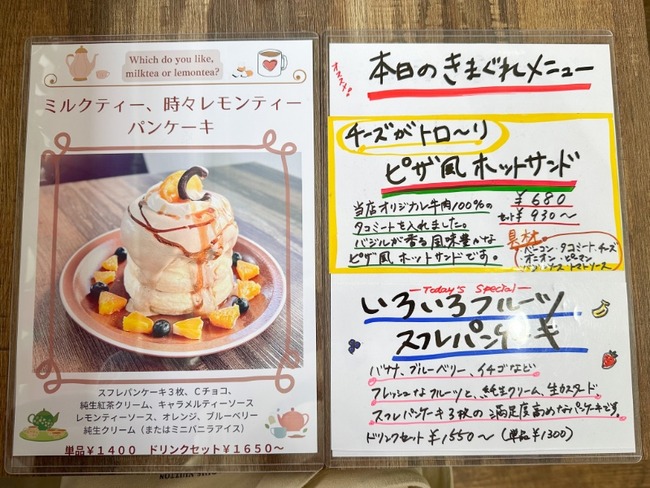 Which do you like,
milktea or lemontea?
ミルクティー、時々レモンティー
パンケーキ
スフレパンケーキ3枚、Cチョコ、
純生紅茶クリーム、キャラメルティーソース
レモンティーソース、オレンジ、ブルーベリー
純生クリーム（またはミニバニラアイス）
単品¥1400 ドリンクセット¥1650～
オススメ!
本日のきまぐれメニュー
チーズがトロ〜リ
ピザ風ホットサンド
当店オリジナル牛肉100%の
タコミートを入れました。
バジルが香る風味豊かな
ピザ風ホットサンドです。
¥680
セット¥930～
具材
・ベーコン・タコミート・チーズ
・オニオン・ピーマン
・バジルソース・トマトソース
Today's Special
いろいろフルーツ
スフレパンケーキ
バナナ、ブルーベリー、イチゴなど
フレッシュなフルーツと、純生クリーム、生カスタード。
スフレパンケーキ3枚の満足度高めなパンケーキです。
ドリンクセット¥1550～（単品¥1300）